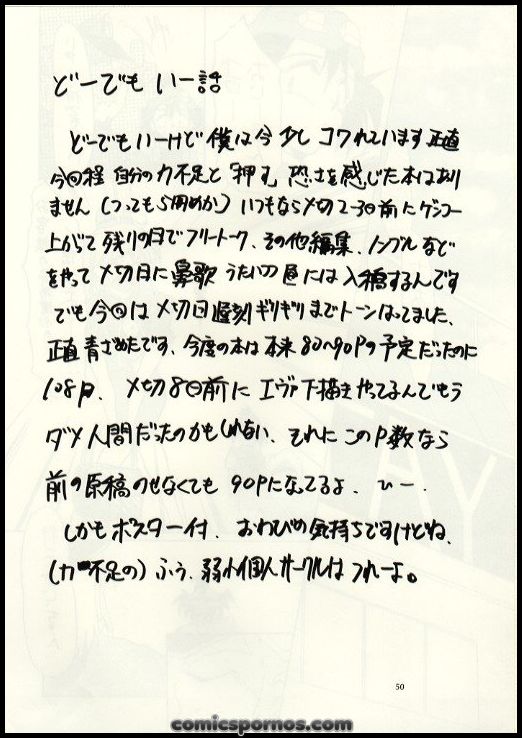 どーでもいー話
どーでもいーけど僕は今少しコワれています正直
今回程自分の力不足と「押す」恐さを感じた本はあり
ません(つっても5冊めか)いつもなら〆切2〜3日前にゲンコー
上がって残りの日でフリートーク、その他編集、ノンブルなど
をやって〆切日に鼻歌うたいつつ昼には入稿するんです
でも今回は〆切日遅刻ギリギリまでトーンはってました、
正直青ざめたです、今度の本は本来80〜90Pの予定だったのに
108P、〆切8日前にエヴァ下描きやってるんでもう
ダメ人間だったのかもしれない、それにこのP数なら
前の原稿のせなくても90Pになってるよ、ひー、
しかもポスター付、おわびの気持ちですけどね、
(力不足の)ふう、弱小個人サークルはつれーよ。
50
comicspornos.com